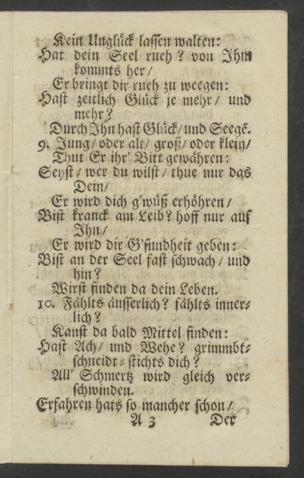 Kein Unglück lassen walten:
Hat dein Seel rueh? von Ihm
kommts her/
Er bringt dir rueh zu weegen:
Hast zeitlich Glück je mehr/ und
mehr?
Durch Ihn hast Glück/ und Seegē.
9. Jung/ oder alt/ groß/ oder klein/
Thut Er ihr' Bitt gewähren:
Seyst/ wer du wilst/ thue nur das
Dein/
Er wird dich g'wüß erhöhren/
Bist kranck am Leib? hoff nur auf
Ihn/
Er wird dir G'sundheit geben:
Bist an der Seel fast schwach/ und
hin?
Wirst finden da dein Leben.
10. Fählts äusserlich? fählts inner-
lich?
Kanst da bald Mittel finden:
Hast Ach/ und Wehe? grimmbt-
schneidt-stichts dich?
All' Schmertz wird gleich ver-
schwinden.
Erfahren hats so mancher schon/
A 3 Der